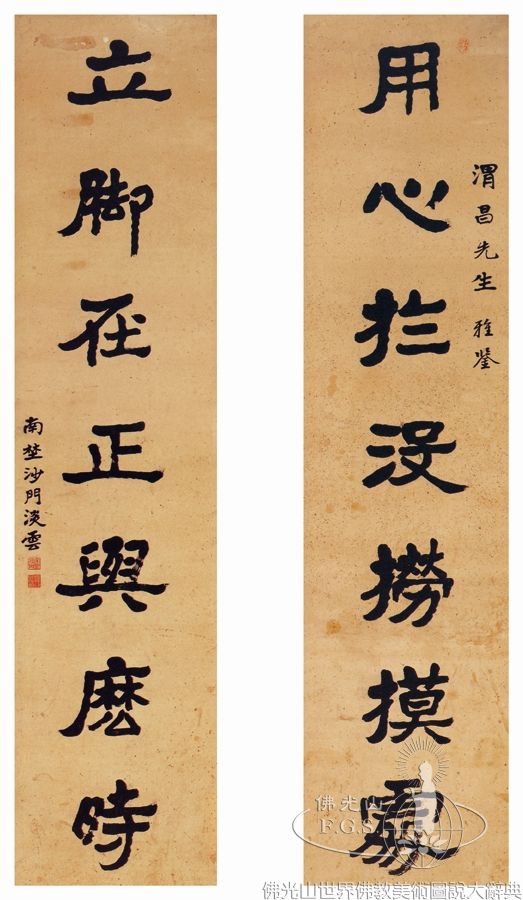 用心扵没撈摸處
渭昌先生 雅鑒
立脚在正與麽時
南埜沙門淡雲
佛光山
F.G.S
佛光山世界佛教美術圖說大辭典